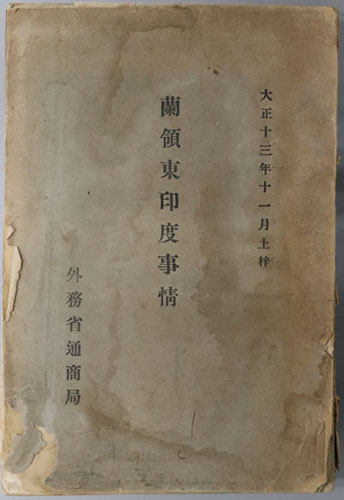 大正十三年十一月上梓
蘭領東印度事情
外務省通商局